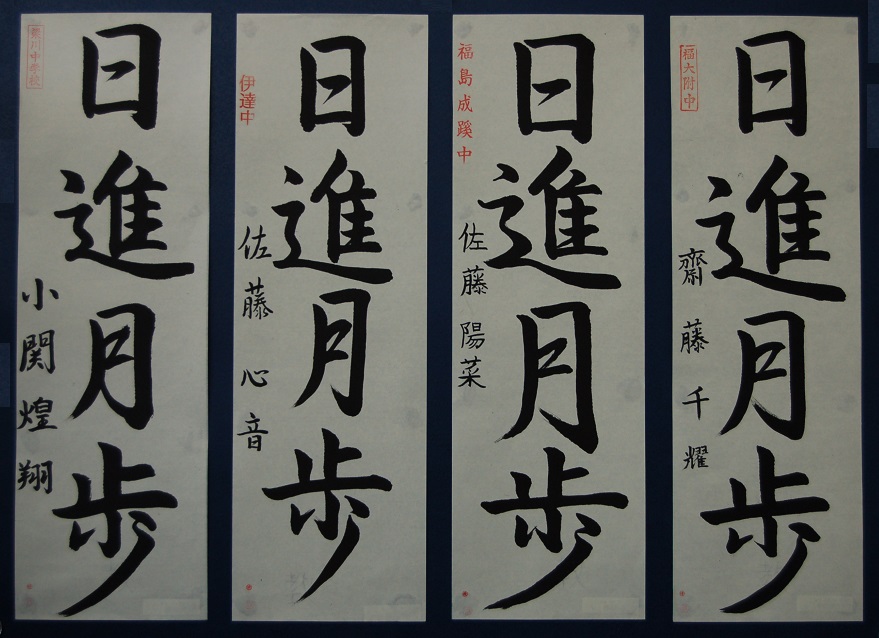 日進月歩
小関煌翔
日進月歩
伊達中
佐藤心音
日進月歩
福島成蹊中
佐藤陽菜
日進月歩
福大附中
齋藤千耀